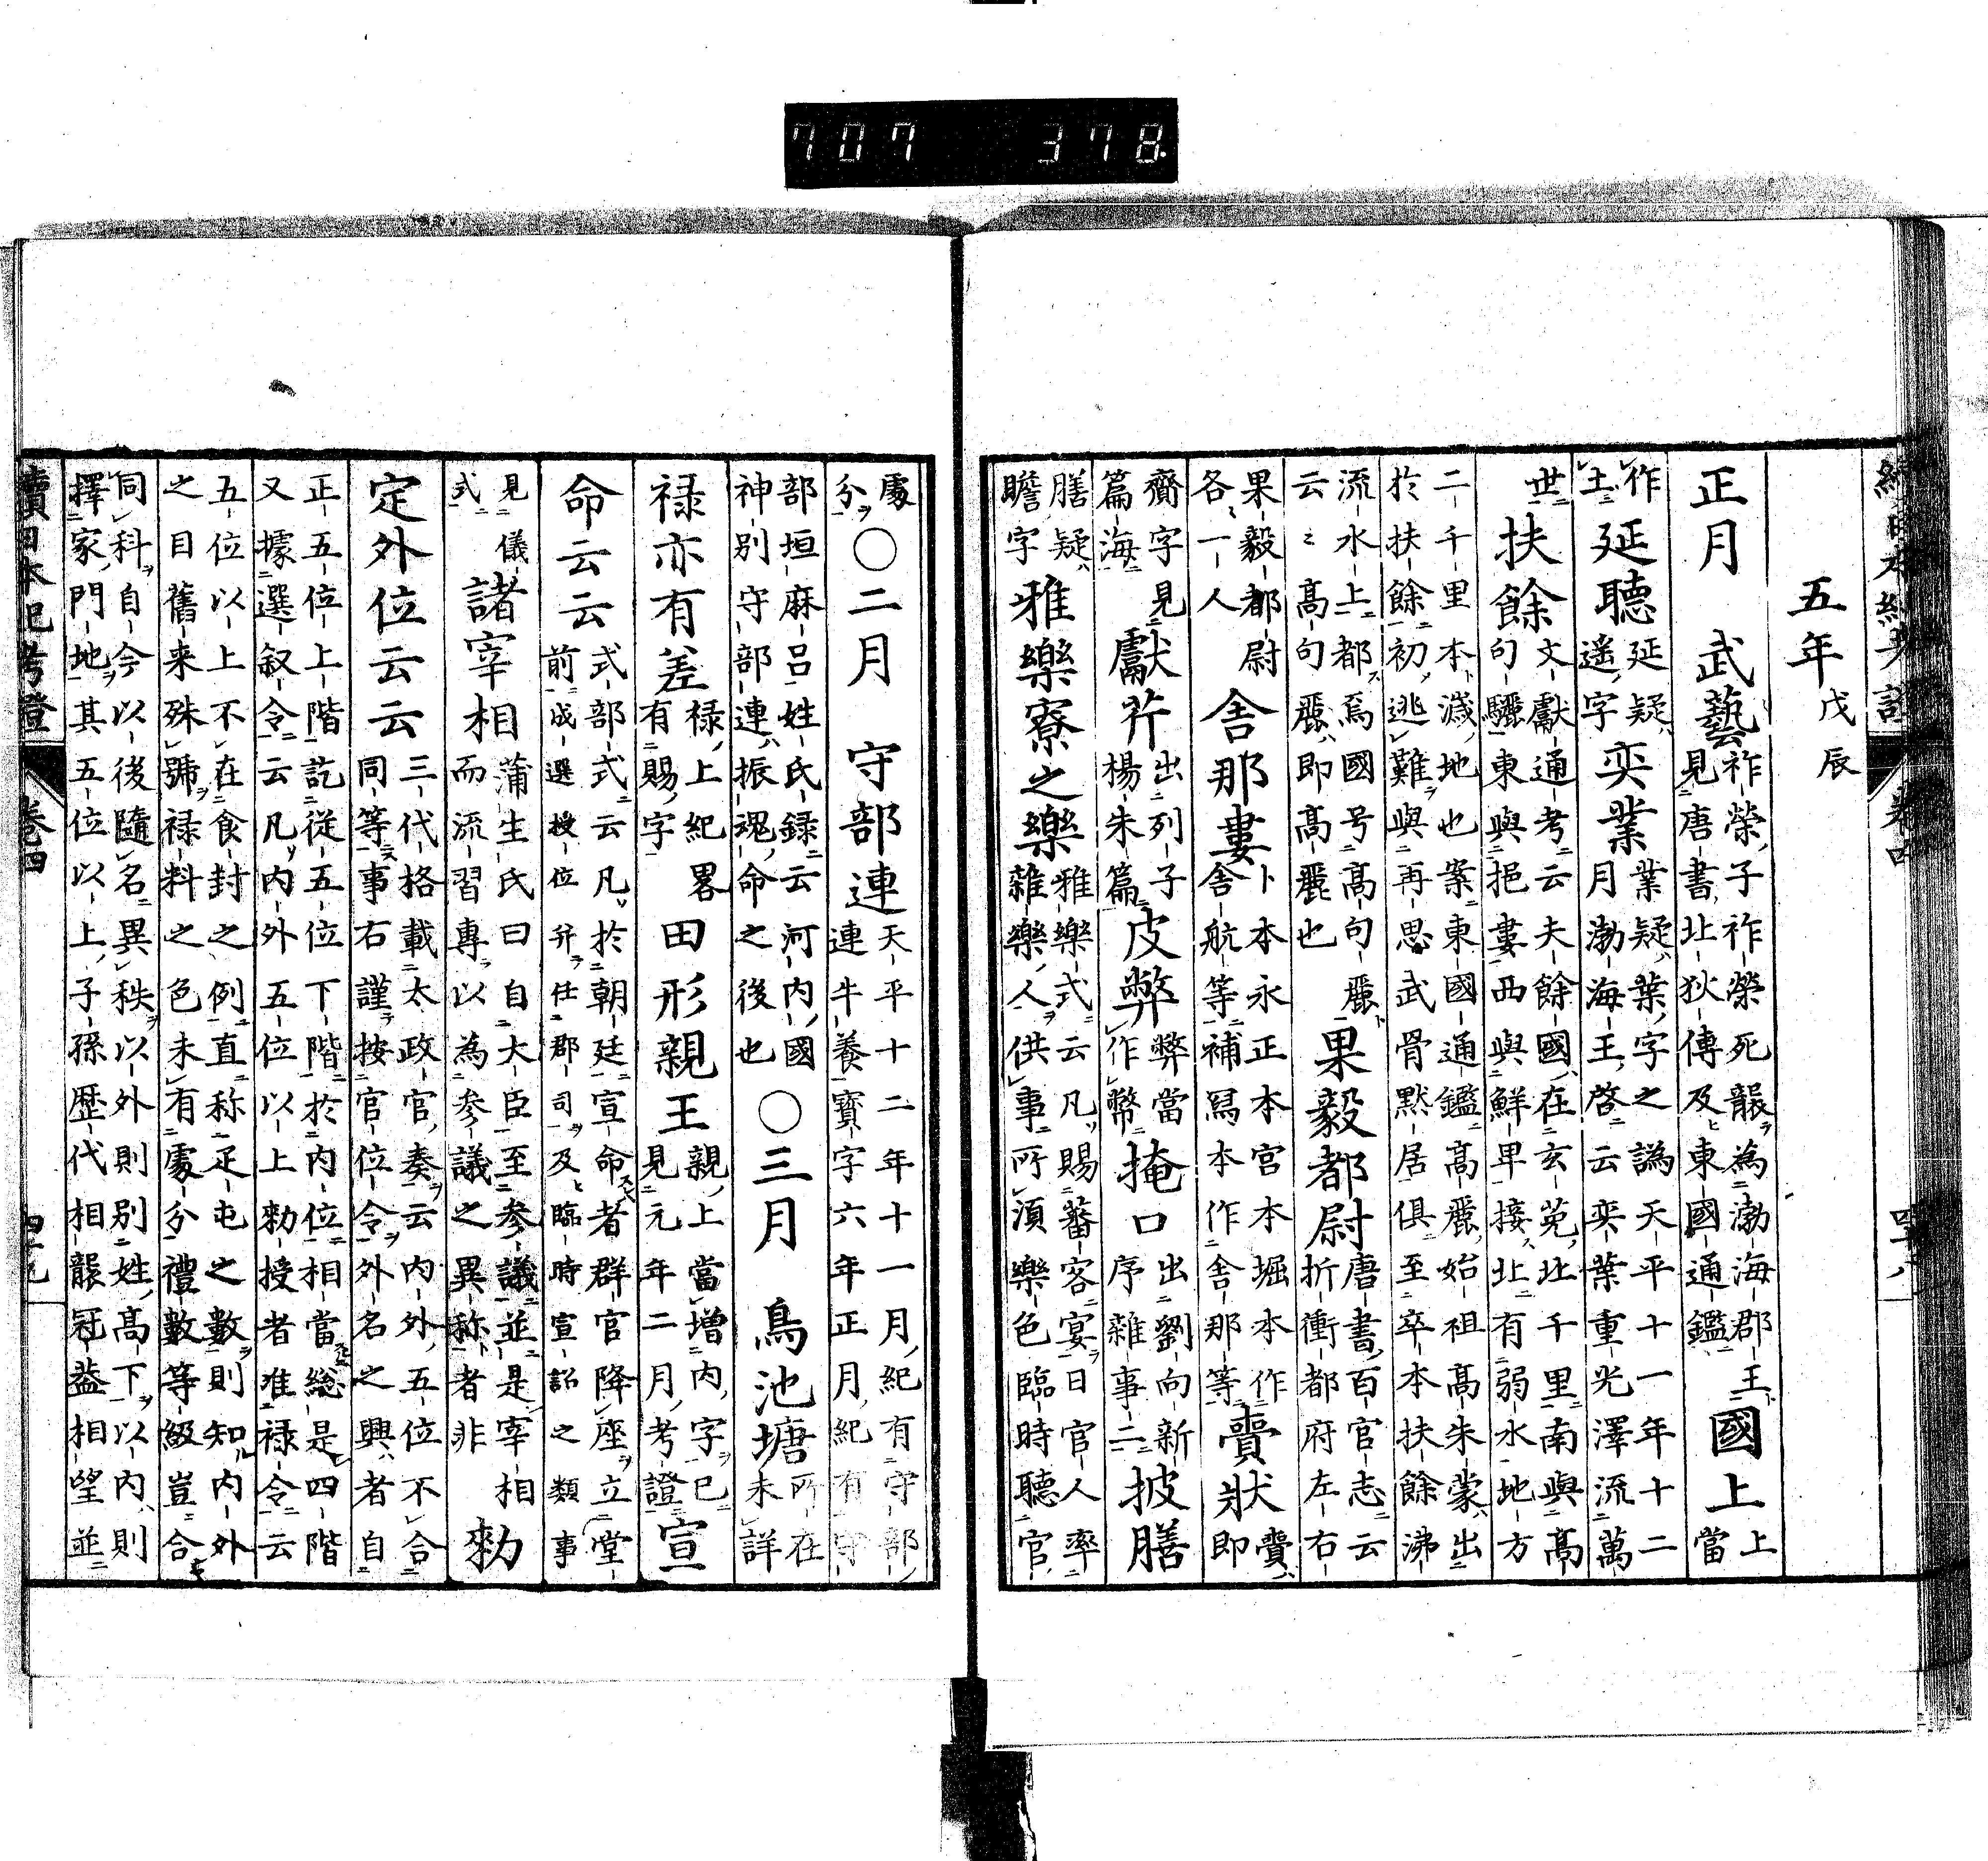 707 378
續日本紀考證 卷四 四十八
五年戊辰
正月 武藝祚榮子祚榮死襲為渤海郡王見唐書北狄傳及東國通鑑國上上當
作土延聽延疑遥字奕業業疑葉字之譌天平十一年十二月渤海王啓云奕葉重光澤流萬
世扶餘文獻通考云夫餘國在玄菟北千里南與高句驪東與挹婁西與鮮卑接北有弱水地方
二千里本濊地也案東國通鑑高麗始祖高朱蒙出於扶餘初逃難與再思武骨默居俱至卒本扶餘沸
流水上都焉國号高句麗云々高句麗即高麗也果毅都尉唐書百官志云折衝都府左右
果毅都尉各一人舍那婁卜本永正本宮本堀本作舎航等補冩本作舎那等賷狀賷即
齎字見篇海獻芹出列子楊朱篇皮弊弊當作幣掩口出劉向新序雜事二披膳
膳疑瞻字雅樂寮之樂雅樂式云凡賜蕃客宴日官人率雜樂人供事所須樂色臨時聽官
處分〇二月 守部連天平十二年十一月紀有守部連牛養寶字六年正月紀有守
部垣麻呂姓氏録云河内國神別守部連振魂命之後也〇三月 鳥池塘所在未詳
禄亦有差禄上紀畧有賜字田形親王親上當増内字已見元年二月考證宣
命云云式部式云凡於朝廷宣命者群官降座立堂前成選授位升任郡司及臨時宣詔之類事
見儀式諸宰相蒲生氏曰自大臣至參議並是宰相而流習專以為參議之異称者非勑
定外位云云三代格載太政官奏云内外五位不合同等事右謹按官位令外名之興者自
正五位上階訖從五位下階於内位相當総是四階又據選叙令云凡内外五位以上勑授者准禄令云
五位以上不在食封之例直称疋屯之數則知内外之目舊来殊號禄料之色未有處分禮數等級豈合
同科自今以後隨名異秩以外則別姓高下以内則擇家門地其五位以上子孫歴代相襲冠蓋相望並
續日本紀考證 卷四 四十九